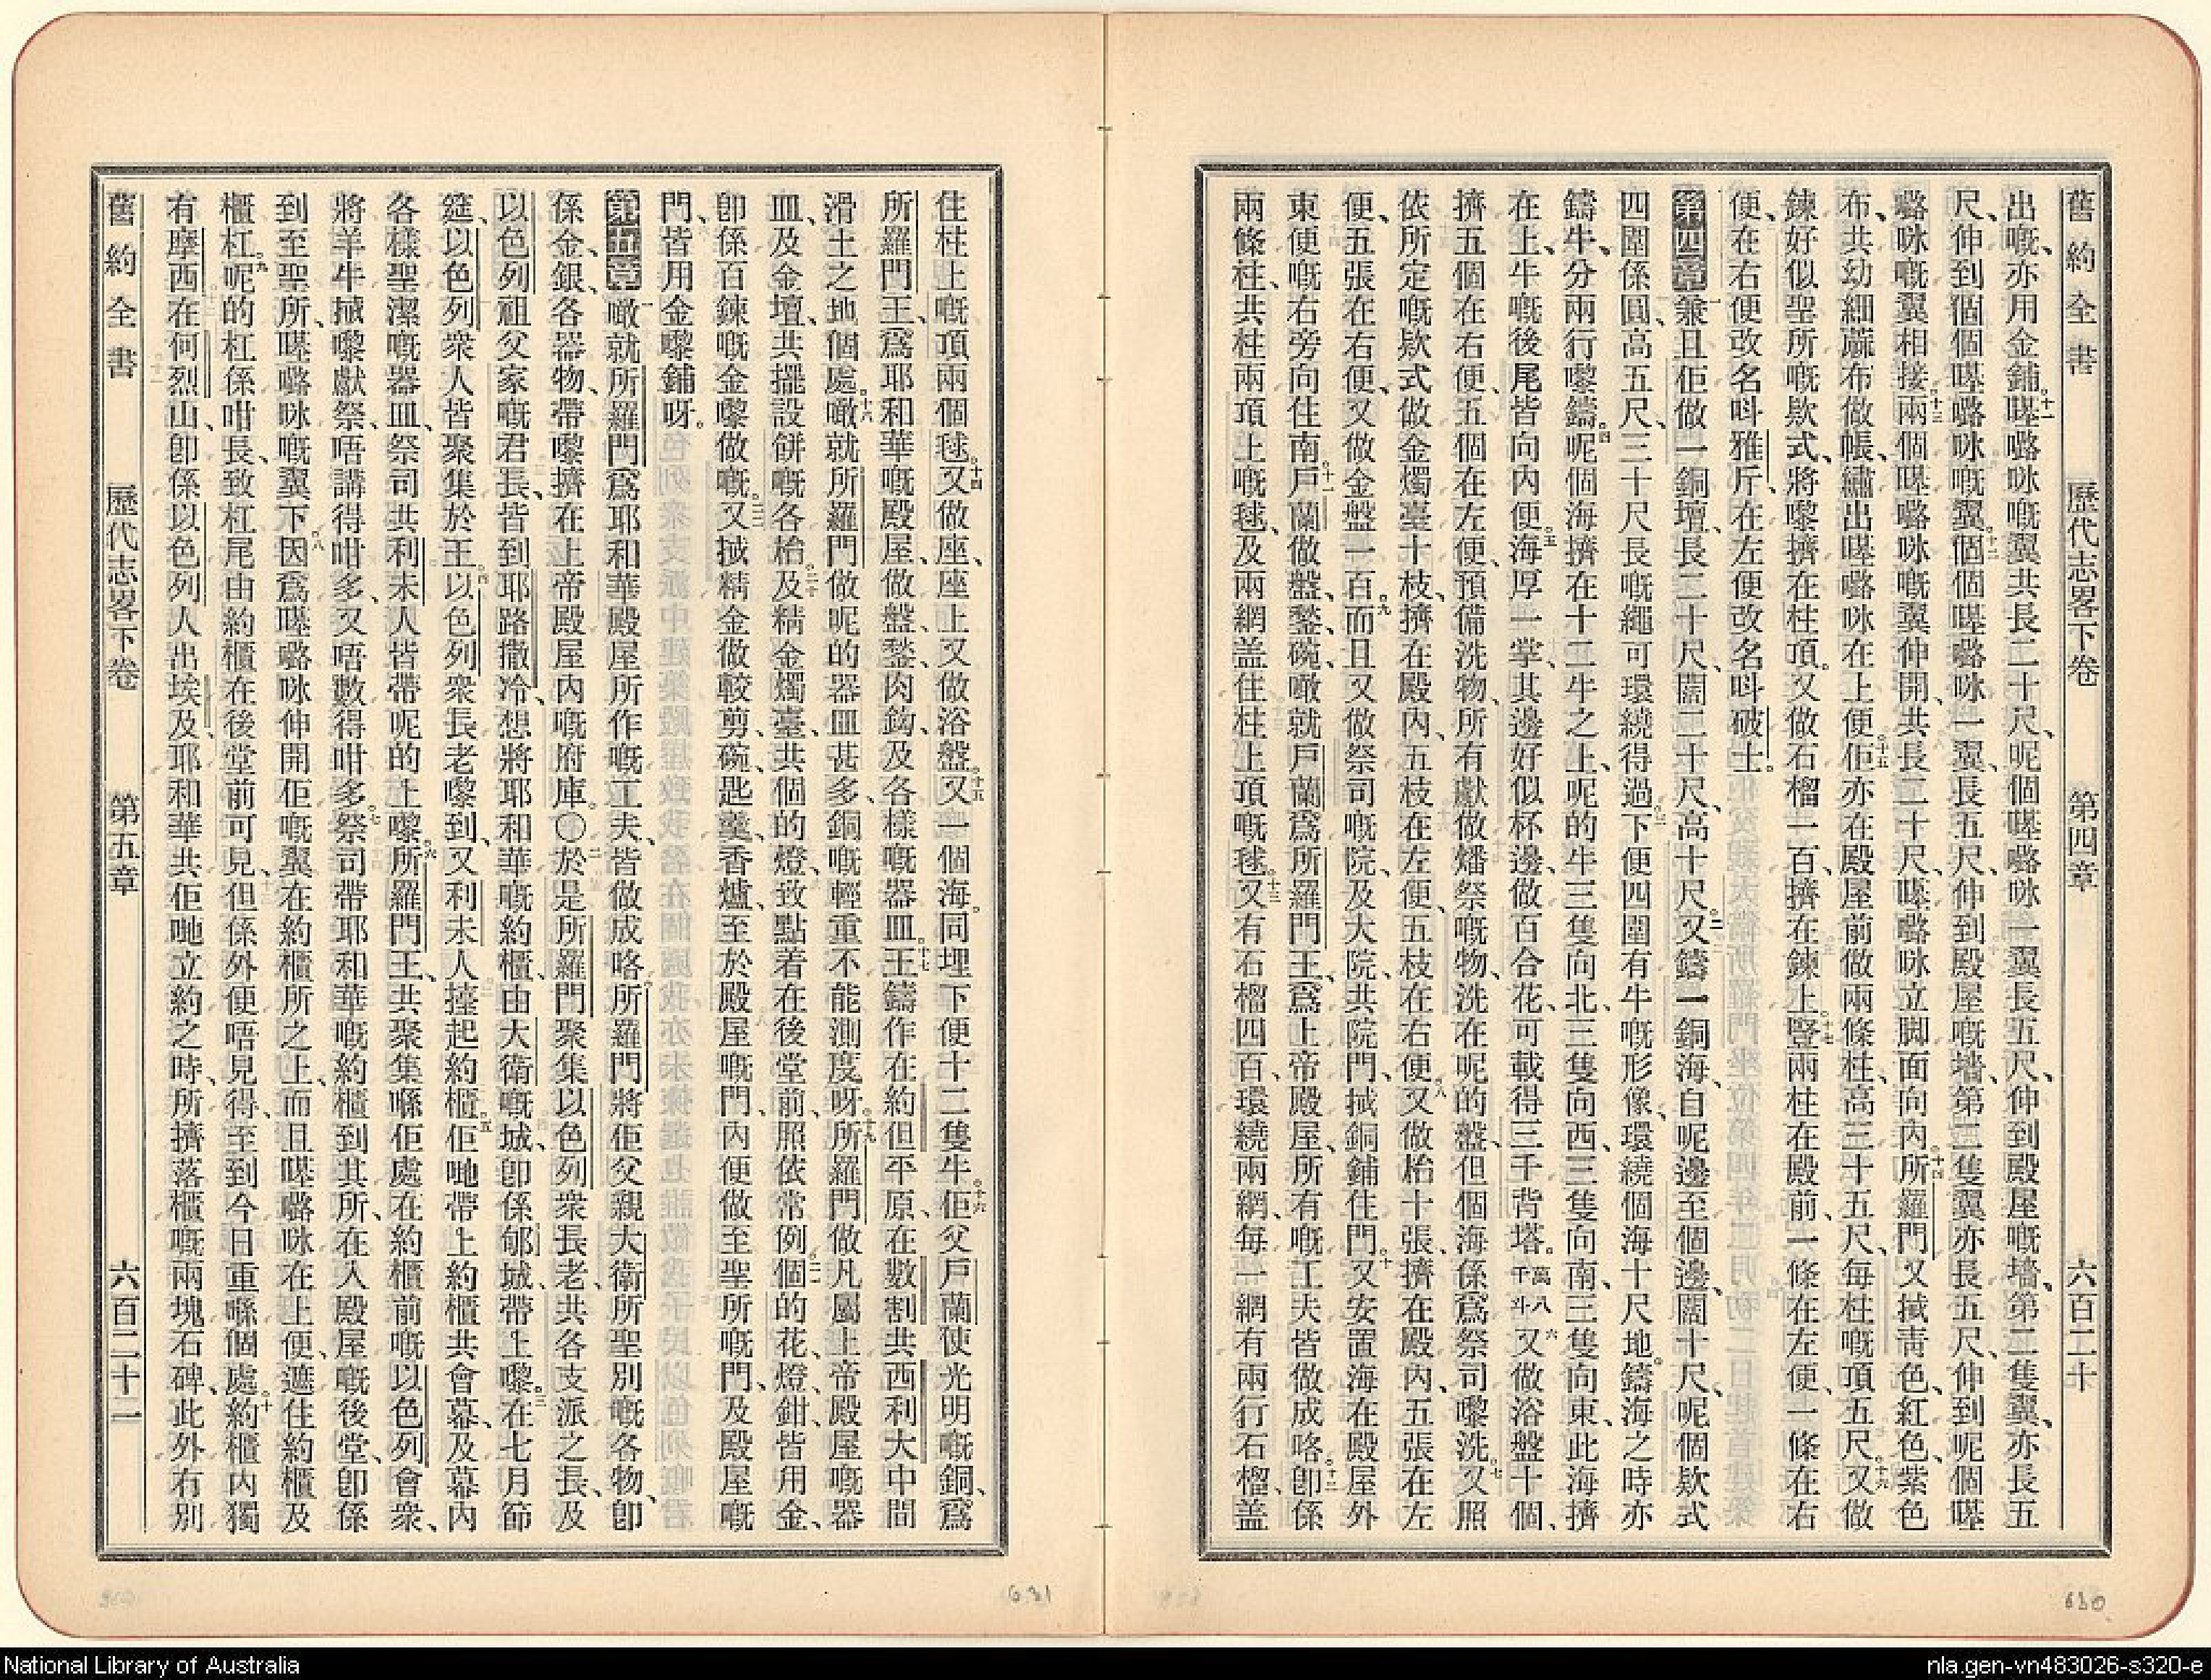 舊約全書 歷代志畧下卷 第四章 六百二十
出嘅、亦用金鋪。十一㘔嚕𠲖嘅翼共長二十尺、呢個㘔嚕𠲖一翼長五尺、伸到殿屋嘅墻、第二隻翼、亦長五
尺、伸到個個㘔嚕𠲖嘅翼。十二個個㘔嚕𠲖一翼、長五尺、伸到殿屋嘅墻、第二隻翼亦長五尺、伸到呢個㘔
嚕𠲖嘅翼相接。十三兩個㘔嚕𠲖嘅翼伸開、共長二十尺、㘔嚕𠲖立脚面向內。十四所羅門又搣靑色、紅色、紫色
布、共幼細蔴布做帳、繡出㘔嚕𠲖在上便。十五佢亦在殿屋前做兩條柱、高三十五尺、每柱嘅頂五尺。十六又做
鍊好似聖所嘅欵式、將嚟擠在柱頂。又做石榴一百、擠在鍊上。十七豎兩柱在殿前、一條在左便、一條在右
便、在右便改名呌雅斤、在左便改名呌破士。
第四章 一兼且佢做一銅壇、長二十尺、闊二十尺、高十尺。二又鑄一銅海、自呢邊至個邊、闊十尺、呢個欵式
四圍係圓、高五尺、三十尺長嘅繩可環繞得過。三下便四圍有牛嘅形像、環繞個海十尺地。鑄海之時亦
鑄牛、分兩行嚟鑄。四呢個海擠在十二牛之上、呢的牛三隻向北、三隻向西、三隻向南、三隻向東、此海擠
在上、牛嘅後尾皆向內便。五海厚一掌、其邊好似杯邊、做百合花、可載得三千背塔。萬八千斗六又做浴盤十個、
擠五個在右便、五個在左便、預備洗物、所有獻做燔祭嘅物、洗在呢的盤、但個海係爲祭司嚟洗。七又照
依所定嘅欵式做金燭臺十枝、擠在殿內、五枝在左便、五枝在右便。八又做枱十張、擠在殿內、五張在左
便、五張在右便、又做金盤一百。九而且又做祭司嘅院、及大院、共院門、搣銅鋪住門。十又安置海在殿屋外
東便嘅右旁向住南。十一戶蘭做盤、鏊、碗、噉就戶蘭爲所羅門王、爲上帝殿屋、所有嘅工夫皆做成咯。十二卽係
兩條柱、共柱兩頂上嘅毬、及兩網盖住柱上頂嘅毬。十三又有石榴四百、環繞兩網、每一網有兩行石榴、盖
住柱上嘅頂兩個毬。十四又做座、座上又做浴盤。十五又一個海。同埋下便十二隻牛。十六佢父戶蘭使光明嘅銅、爲
所羅門王、爲耶和華嘅殿屋、做盤、鏊、肉鈎、及各樣嘅器皿。十七王鑄作在約但平原、在數割共西利大中間
滑土之地個處。十八噉就所羅門做呢的器皿甚多、銅嘅輕重不能測度呀。十九所羅門做凡屬上帝殿屋嘅器
皿、及金壇、共擺設餅嘅各枱。二十及精金燭臺、共個的燈、致點着在後堂前、照依常例。二一個的花、燈、鉗、皆用金、
卽係百鍊嘅金嚟做嘅。二二又搣精金做較剪、碗、匙羹、香爐、至於殿屋嘅門、內便做至聖所嘅門、及殿屋嘅
門、皆用金嚟鋪呀。
第五章 一噉就所羅門爲耶和華殿屋所作嘅工夫、皆做成咯、所羅門將佢父親大衛所聖別嘅各物、卽
係金、銀、各器物、帶嚟擠在上帝殿屋內嘅府庫。〇二於是所羅門聚集以色列衆長老、共各支派之長、及
以色列祖父家嘅君長、皆到耶路撒冷、想將耶和華嘅約櫃、由大衛嘅城、卽係郇城、帶上嚟。三在七月節
筵、以色列衆人皆聚集於王。四以色列衆長老嚟到、又利未人擡起約櫃。五佢哋帶上約櫃共會幕、及幕內
各樣聖潔嘅器皿、祭司共利未人皆帶呢的上嚟。六所羅門王、共聚集喺佢處在約櫃前嘅以色列會衆、
將羊牛搣嚟獻祭、唔講得咁多、又唔數得咁多。七祭司帶耶和華嘅約櫃到其所、在入殿屋嘅後堂、卽係
到至聖所、㘔嚕𠲖嘅翼下。八因爲㘔嚕𠲖伸開佢嘅翼在約櫃所之上、而且㘔嚕𠲖在上便、遮住約櫃及
櫃杠。九呢的杠係咁長、致杠尾由約櫃在後堂前可見、但係外便唔見得、至到今日重喺個處。十約櫃內獨
有摩西在何烈山、卽係以色列人出埃及、耶和華共佢哋立約之時、所擠落櫃嘅兩塊石碑、此外冇別
舊約全書 歷代志畧下卷 第五章 六百二十一
631
630
National Library of Australia
nla.gen-vn483026-s320-e